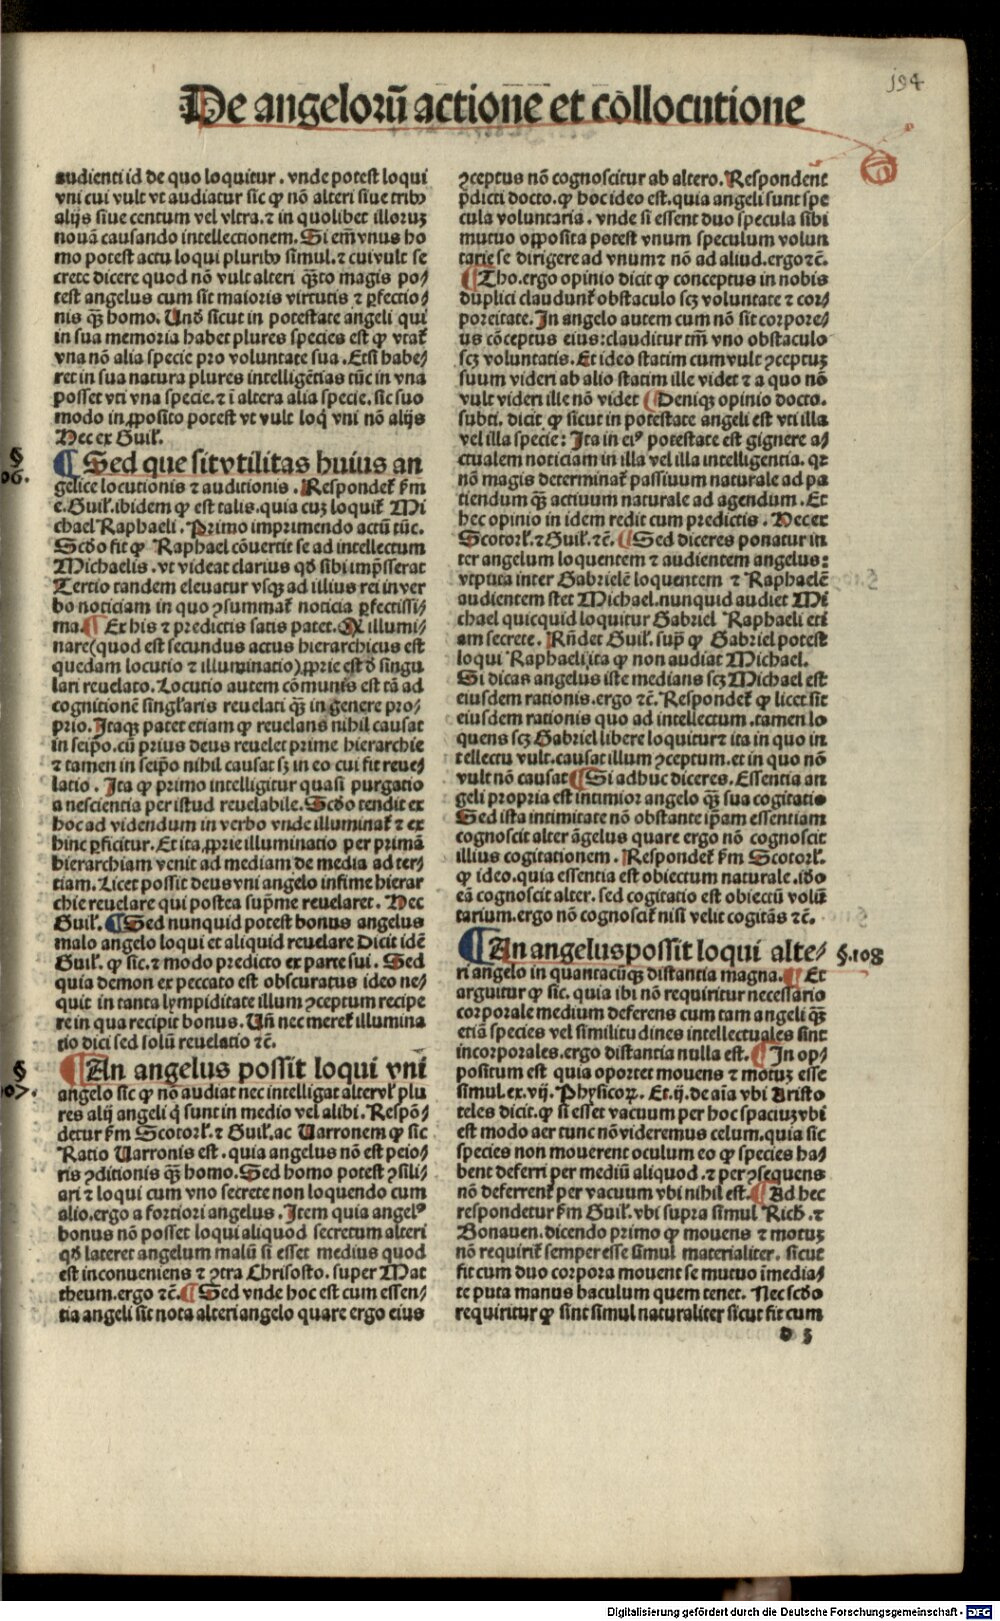 194
De angelorū actione et collocutione
audienti id de quo loquitur . vnde potest loqui
vni cui vult vt audiatur sic ꝙ nō alteri siue tribꝰ
alijs siue centum vel vltra. ⁊ in quolibet illoruꝫ
nouā causando intellectionem. Si em̄ vnus ho
mo potest actu loqui pluribꝰ simul. ⁊ cui vult se
crete dicere quod nō vult alteri q̄ꝫto magis po⸗
test angelus cum sit maioris virtutis ⁊ ꝑfectio⸗
nis q̄ꝫ homo. Vnd̄ sicut in potestate angeli qui
in sua memoria habet plures species est ꝙ vtat̄
vna nō alia specie pro voluntate sua . Etsi habe⸗
ret in sua natura plures intelligētias tūc in vna
posset vti vna specie. ⁊ ī altera alia specie. sic suo
modo in ꝓposito potest vt vult loq̇ vni nō alijs
Hec ex Guil̄.
§
06.
¶ Sed que sit vtilitas huius an
gelice locutionis ⁊ auditionis . Respondet̄ ẜm
e. Guil̄. ibidem ꝙ est talis. quia cuꝫ loquit̄ Mi
chael Raphaeli . Primo imprimendo actū tūc.
Scd̄o fit ꝙ Raphael cōuertit se ad intellectum
Michaelis . vt videat clarius qd̄ sibi imp̄sserat
Tertio tandem eleuatur vsqꝫ ad illius rei in ver
bo noticiam in quo ꝯsummat̄ noticia ꝑfectissi⸗
ma. ¶ Ex his ⁊ predictis satis patet. Ꝙ illumi⸗
nare (quod est secundus actus hierarchicus est
quedam locutio ⁊ illuminatio) ꝓprie est d̄ singu
lari reuelato. Locutio autem cōmunis est tā ad
cognitionē singl̄aris reuelati q̄ꝫ in genere pro⸗
prio. Itaqꝫ patet etiam ꝙ reuelans nihil causat
in seip̄o. cū prius deus reuelet prime hierarchie
⁊ tamen in seip̄o nihil causat sꝫ in eo cui fit reue⸗
latio . Ita ꝙ primo intelligitur quasi purgatio
a nescientia per istud reuelabile. Scd̄o tendit ex
hoc ad videndum in verbo vnde illuminat̄ ⁊ ex
hinc ꝑficitur. Et ita ꝓprie illuminatio per primā
hierarchiam venit ad mediam de media ad ter⸗
tiam. Licet possit deus vni angelo infime hierar
chie reuelare qui postea sup̄me reuelaret . Hec
Guil̄. ¶ Sed nunquid potest bonus angelus
malo angelo loqui et aliquid reuelare Dicit idē
Guil̄. ꝙ sic. ⁊ modo predicto ex parte sui . Sed
quia demon ex peccato est obscuratus ideo ne⸗
quit in tanta lympiditate illum ꝯceptum recipe
re in qua recipit bonus. Vn̄ nec meret̄ illumina
tio dici sed solū reuelatio ⁊c̄.
§
107.
¶ An angelus possit loqui vni
angelo sic ꝙ nō audiat nec intelligat alter vl̄ plu
res alij angeli q̇ sunt in medio vel alibi. Respō⸗
detur ẜm Scotorl̄. ⁊ Guil̄. ac Varronem ꝙ sic
Ratio Varronis est . quia angelus nō est peio⸗
ris ꝯditionis q̄ꝫ homo. Sed homo potest ꝯsili⸗
ari ⁊ loqui cum vno secrete non loquendo cum
alio. ergo a fortiori angelus . Item quia angelꝰ
bonus nō posset loqui aliquod secretum alteri
qd̄ lateret angelum malū si esset medius quod
est inconueniens ⁊ ꝯtra Chrisosto. super Mat
theum. ergo ⁊c̄. ¶ Sed vnde hoc est cum essen⸗
tia angeli sit nota alteri angelo quare ergo eius
ꝯceptus nō cognoscitur ab altero. Respondent
p̄dicti docto. ꝙ hoc ideo est. quia angeli sunt spe
cula voluntaria . vnde si essent duo specula sibi
mutuo opposita potest vnum speculum volun
tarie se dirigere ad vnum ⁊ nō ad aliud. ergo ⁊c̄.
¶ Tho. ergo opinio dicit ꝙ conceptus in nobis
duplici claudunt̄ obstaculo scꝫ voluntate ⁊ cor⸗
poreitate. In angelo autem cum nō sit corpore⸗
us cōceptus eius: clauditur tm̄ vno obstaculo
scꝫ voluntatis . Et ideo statim cum vult ꝯceptuꝫ
suum videri ab alio statim ille videt ⁊ a quo nō
vult videri ille nō videt ¶ Deniqꝫ opinio docto.
subti. dicit ꝙ sicut in potestate angeli est vti illa
vel illa specie: Ita in eiꝰ potestate est gignere a⸗
ctualem noticiam in illa vel illa intelligentia. qꝛ
nō magis determinat̄ passiuum naturale ad pa
tiendum q̄ꝫ actiuum naturale ad agendum . Et
hec opinio in idem redit cum predictis . Hec ex
Scotorl̄. ⁊ Guil̄. ⁊c̄. ¶ Sed diceres ponatur in
ter angelum loquentem ⁊ audientem angelus:
vtputa inter Gabrielē loquentem ⁊ Raphaelē
audientem stet Michael. nunquid audiet Mi
chael quicquid loquitur Gabriel Raphaeli eti
am secrete . Rn̄det Guil̄. sup̄ ꝙ Gabriel potest
loqui Raphaeli ita ꝙ non audiat Michael.
Si dicas angelus iste medians scꝫ Michael est
eiusdem rationis. ergo ⁊c̄. Respondet̄ ꝙ licet sit
eiusdem rationis quo ad intellectum . tamen lo
quens scꝫ Gabriel libere loquitur ⁊ ita in quo in
tellectu vult. causat illum ꝯceptum. et in quo nō
vult nō causat ¶ Si adhuc diceres. Essentia an
geli propria est intimior angelo q̄ꝫ sua cogitatio
Sed ista intimitate nō obstante ip̄am essentiam
cognoscit alter āgelus quare ergo nō cognoscit
illius cogitationem . Respondet̄ ẜm Scotorl̄.
ꝙ ideo. quia essentia est obiectum naturale. id̄o
eā cognoscit alter. sed cogitatio est obiectū volū
tarium. ergo nō cognoscit̄ nisi velit cogitās ⁊c̄.
¶ An angelus possit loqui alte⸗
§.108
ri angelo in quantacūqꝫ distantia magna. ¶ Et
arguitur ꝙ sic. quia ibi nō requiritur necessario
corporale medium deferens cum tam angeli q̄ꝫ
etiā species vel similitudines intellectuales sint
incorporales. ergo distantia nulla est. ¶ In op⸗
positum est quia oportet mouens ⁊ motuꝫ esse
simul. ex. vij. Physicoꝝ. Et. ij. de aīa vbi Aristo
teles dicit. ꝙ si esset vacuum per hoc spaciuꝫ vbi
est modo aer tunc nō videremus celum. quia sic
species non mouerent oculum eo ꝙ species ha⸗
bent deferri per mediū aliquod . ⁊ per ꝯsequens
nō deferrent̄ per vacuum vbi nihil est. ¶ Ad hec
respondetur ẜm Guil̄. vbi supra simul Rich̄. ⁊
Bonauen. dicendo primo ꝙ mouens ⁊ motuꝫ
nō requirit̄ semper esse simul materialiter. sicut
fit cum duo corpora mouent se mutuo īmedia⸗
te puta manus baculum quem tenet. Nec scd̄o
requiritur ꝙ sint simul naturaliter sicut fit cum
d 5
Digitalisierung gefördert durch die Deutsche Forschungsgemeinschaft - DFG